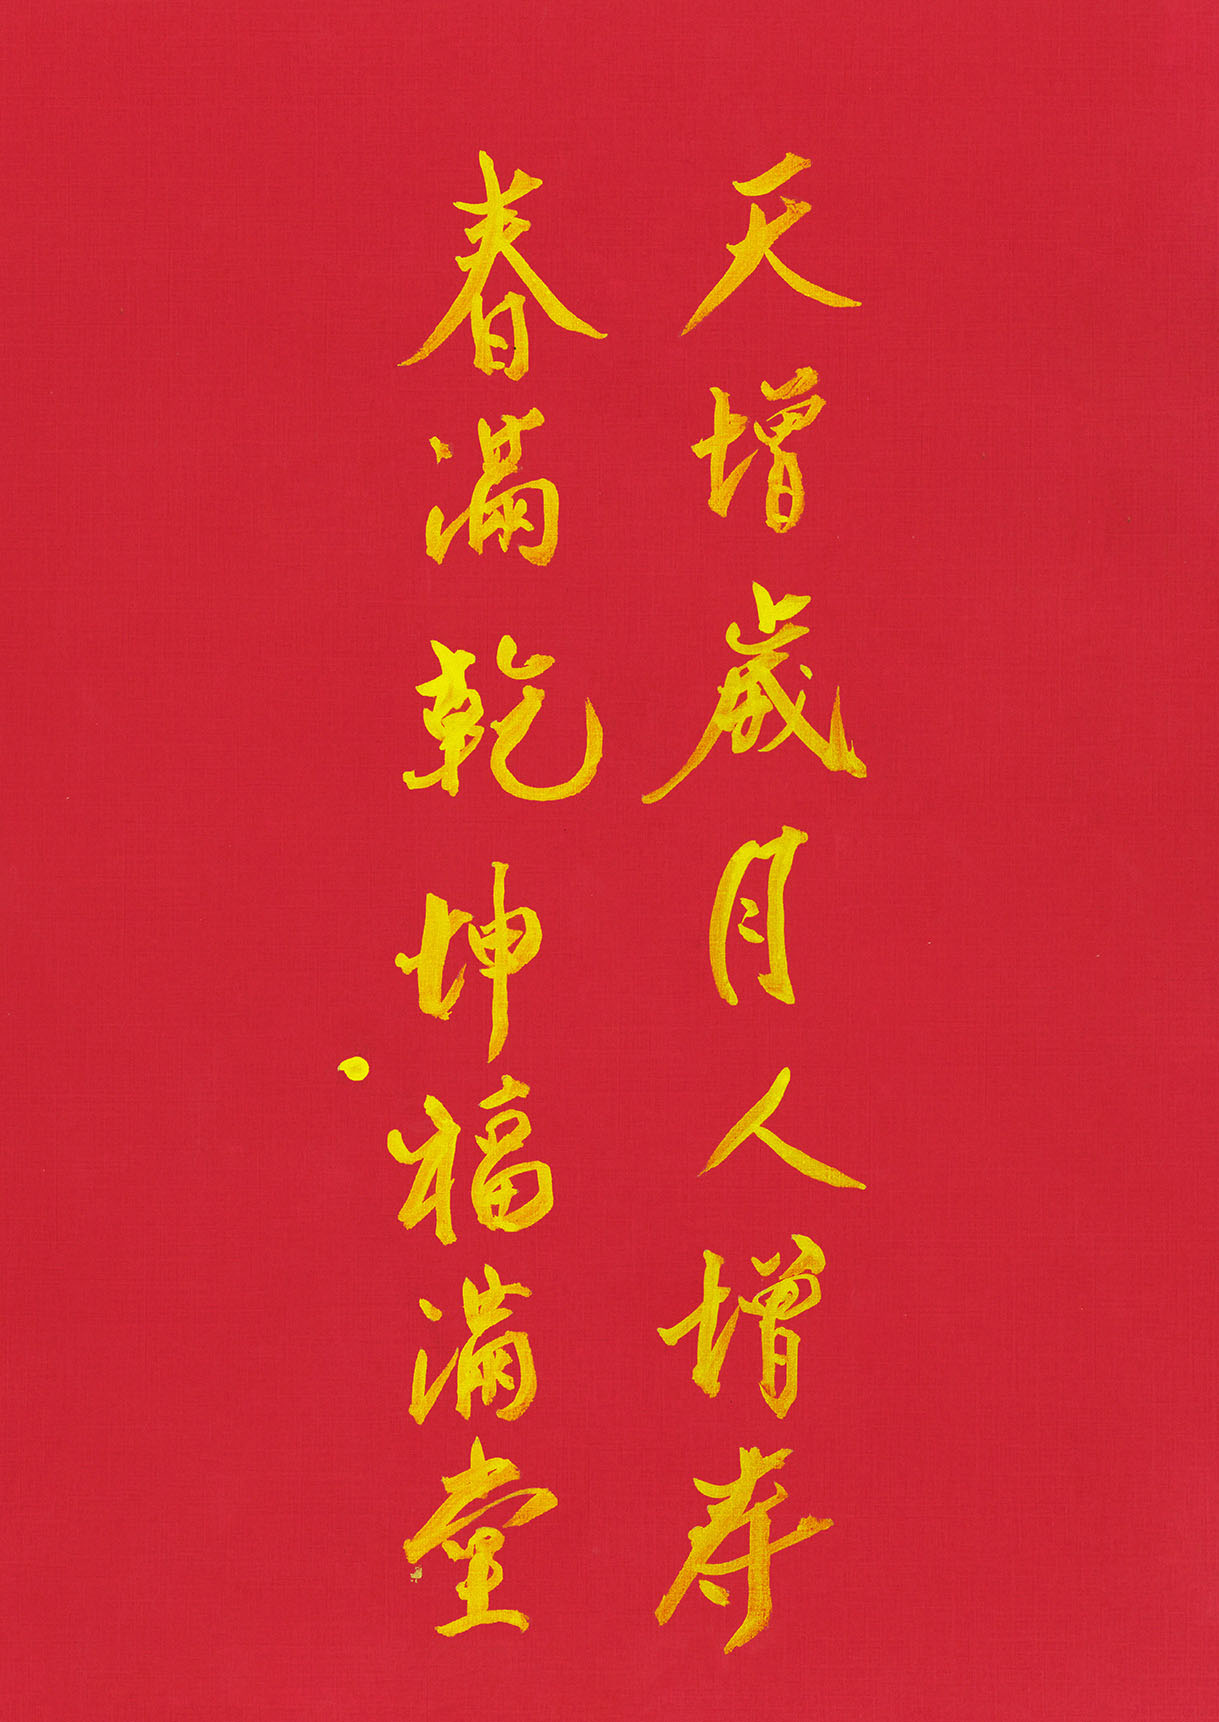 天增歲月人增寿
春滿乾坤福滿堂